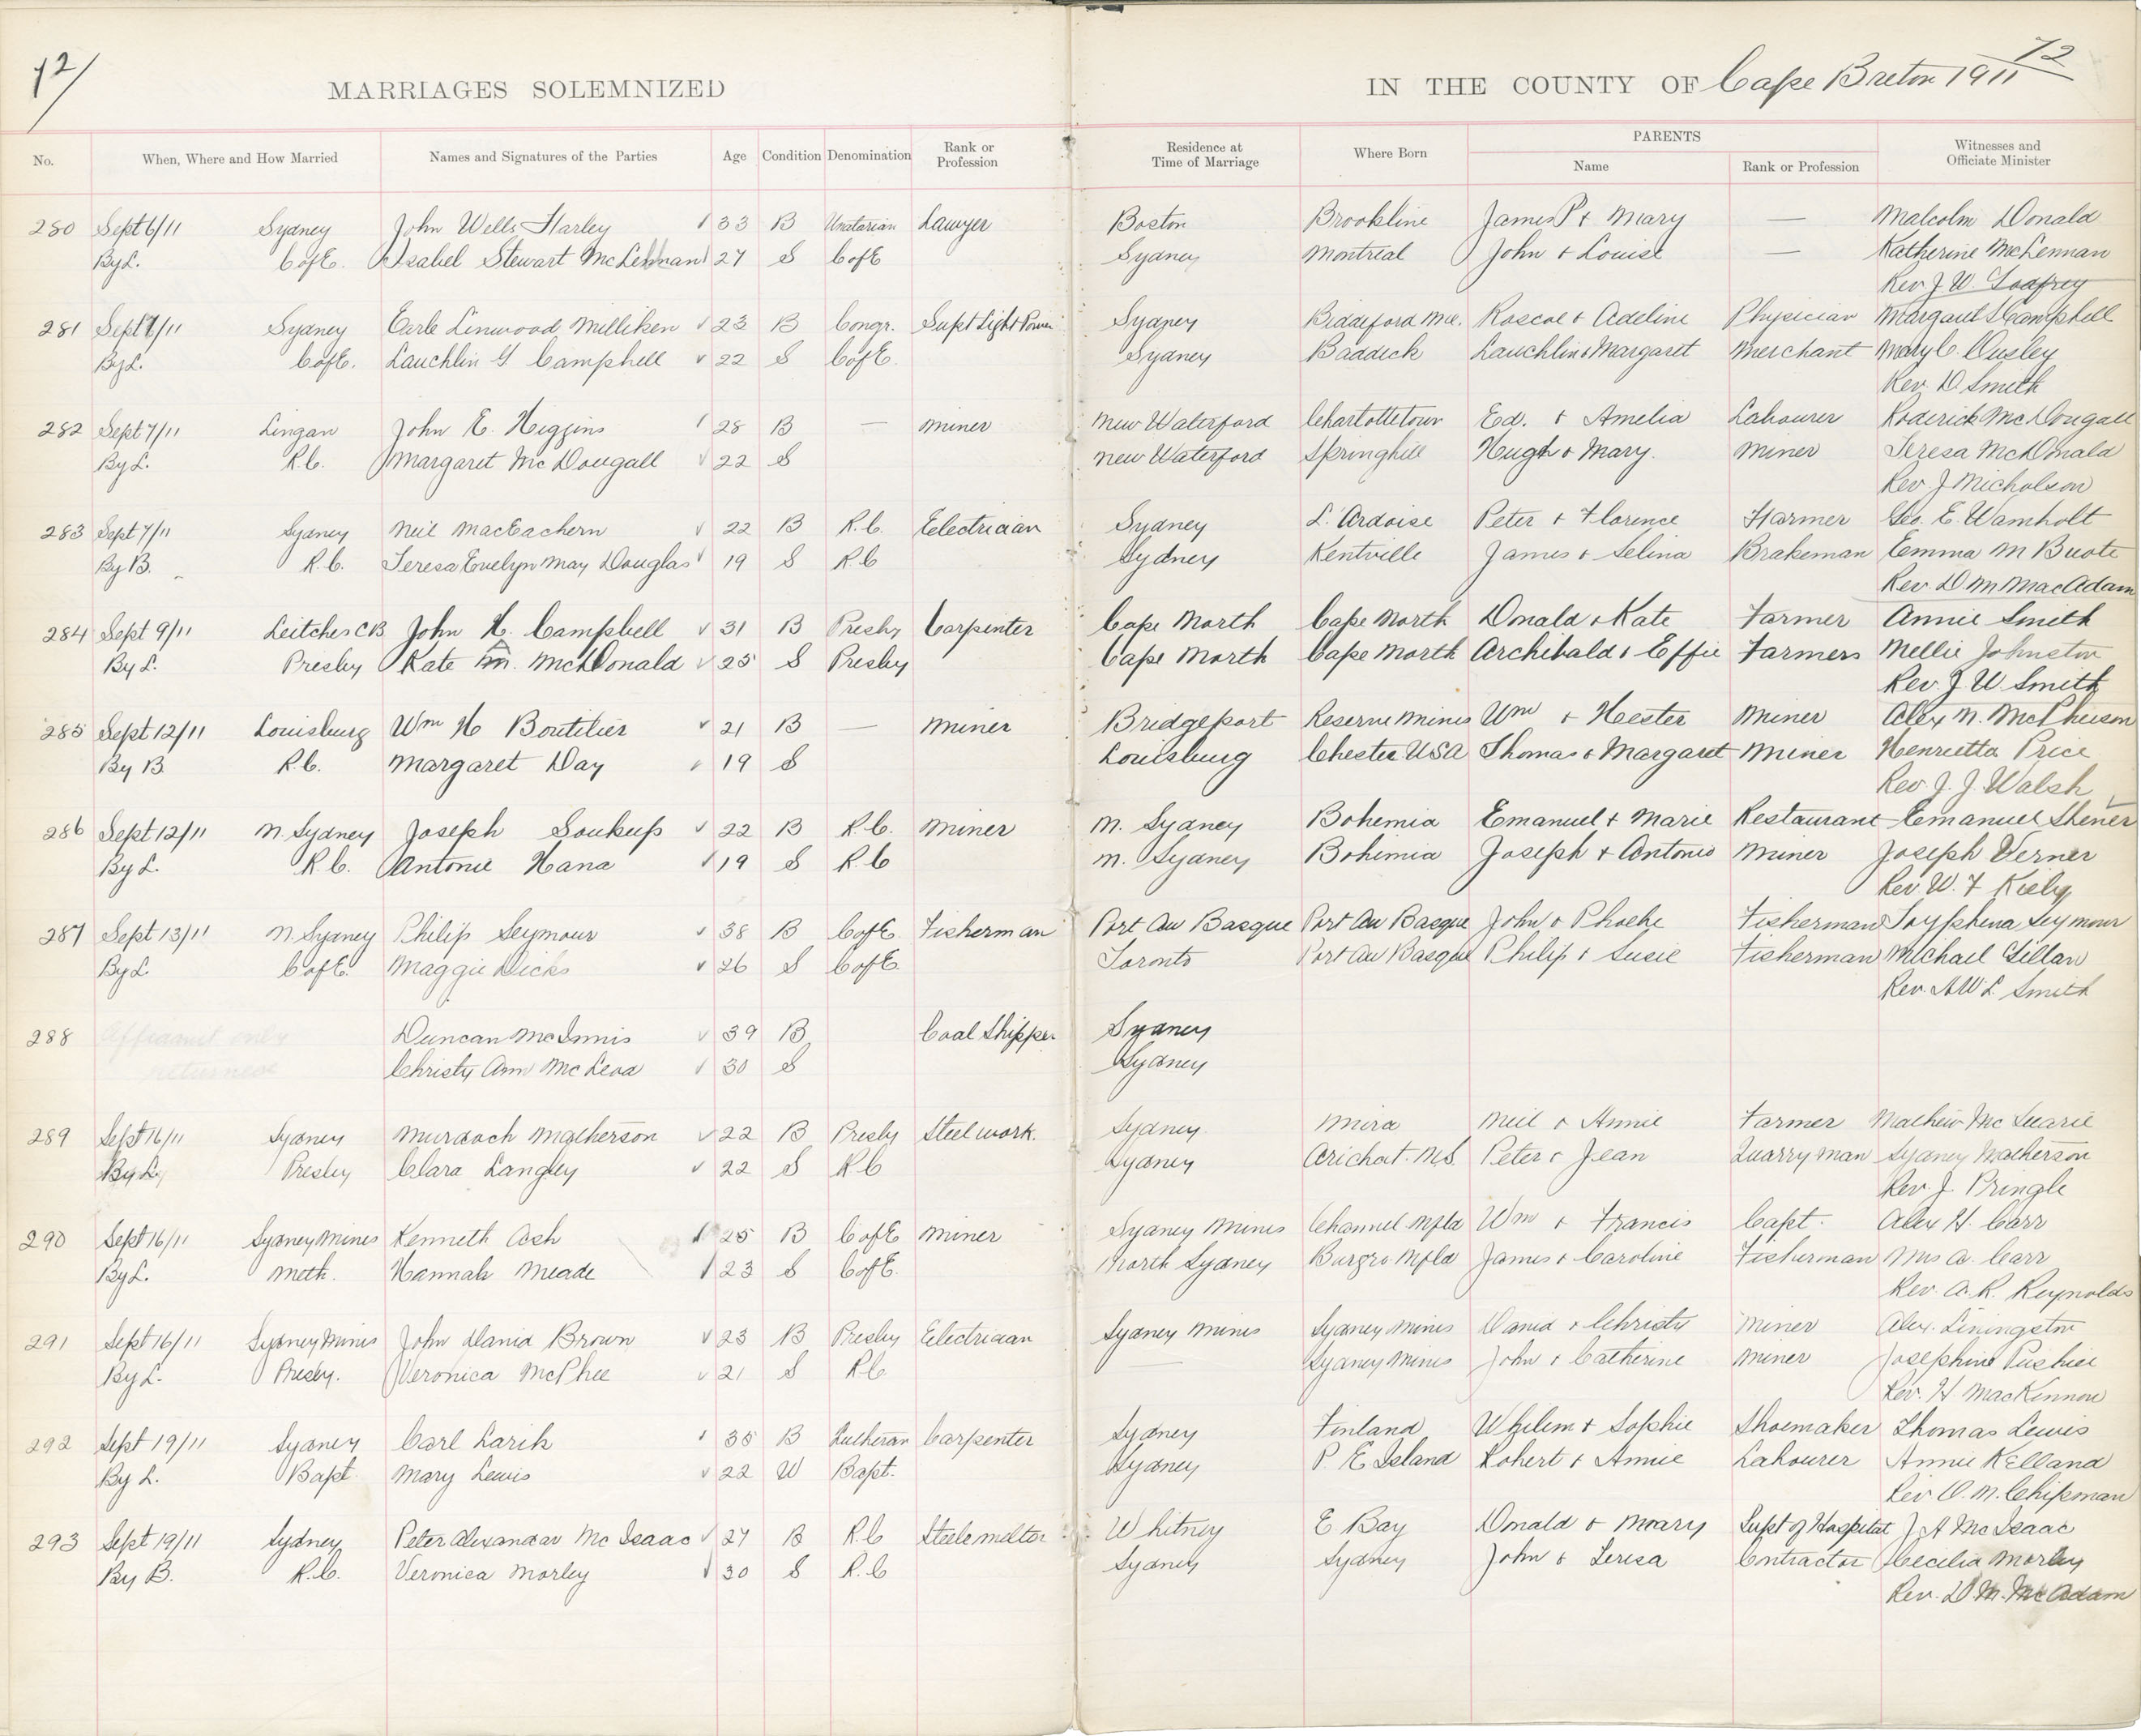 72
MARRIAGES SOLEMNIZED
IN THE COUNTY OF Cape Breton 1911
72
No. When, Where and How Married Names and Signatures of the Parties Age Condition Denomination Rank or Profession Residence at Time of Marriage Where Born PARENTS Name Rank or Profession Witnesses and Officiate Minister
280 Sept 6/11 Sydney John Wells Farley 33 B Unatarian Lawyer Boston Brookline James P & Mary — Malcolm Donald
By L. C of E. Isabel Stewart McLennan 27 S C of E Sydney Montreal John & Louise — Katherine McLennan
Rev J. W. Godfrey
281 Sept 7/11 Sydney Earle Linwood Milliken 23 B Congr. Supt Light Power Sydney Biddeford Me. Roscoe & Adeline Physician Margaret S Campbell
By L. C of E. Lauchlin G Campbell 22 S C of E. Sydney Baddeck Lauchlin & Margaret Merchant Mary C. Ousley
Rev. D. Smith
282 Sept 7/11 Lingan John E. Higgins 28 B — Miner New Waterford Charlottetown Ed. & Amelia Labourer Roderick McDougall
By L. R.C. Margaret McDougall 22 S New Waterford Springhill Hugh & Mary. Miner Teresa McDonald
Rev. J Nicholson
283 Sept 7/11 Sydney Neil MacEachern 22 B R.C. Eelectrician Sydney L'Ardoise Peter & Florence Farmer Geo. E. Wamholt
By B. R.C. Teresa Evelyn May Douglas 19 S R.C Sydney Kentville James & Selina Brakeman Emma M Buote
Rev. D M MacAdam
284 Sept 9/11 Leitches CB John H. Campbell 31 B Presby Carpenter Cape North Cape North Donald & Kate Farmer Annie Smith
By L. Presby Kate A. McDonald 25 S Presby Cape North Cape North Archibald & Effie Farmers Mellie Johnston
Rev. J. W Smith
285 Sept 12/11 Louisburg Wm H Boutilier 21 B — Miner Bridgeport Reserve Mines Wm & Hester Miner Alex N. McPherson
By B. R.C. Margaret Day 19 S Louisburg Chester USA Thomas & Margaret Miner Henrietta Price
Rev J. J. Walsh
286 Sept 12/11 N. Sydney Joseph Soukup 22 B R.C. Miner N. Sydney Bohemia Emanuel & Marie Restaurant Emanuel Shener
By L. R.C. Antonie Hana 19 S R.C N. Sydney Bohemia Joseph & Antonio Miner Joseph Verner
Rev. W. F Kiely
287 Sept 13/11 N. Sydney Philip Seymour 38 B C of E. Fisherman Port Au Basque Port Au Basque John & Phoebe Fisherman Seymour
By L C of E. Maggie Dicks 26 S C of E. Toronto Port Au Basque Philip & Susie Fisherman Michael Gillan
Rev. A W L Smith
288 Affidavit only Duncan McInnis 39 B Coal Shipper Sydney
returned Christy Ann McLeod 30 S Sydney
289 Sept 16/11 Sydney Murdoch Matherson 22 B Presby Steel work. Sydney Mira Neil & Annie Farmer Mathew McQuarie
By L. Presby Clara Langley 22 S R C Sydney Arichat. N.S. Peter & Jean Quarry man Sydney Matherson
Rev. J. Pringle
290 Sept 16/11 Sydney Mines Kenneth Ash 25 B C of E Miner Sydney Mines Channel Nfld Wm & Francis Capt. Alex H. Carr
By L. Meth. Hannah Meade 23 S C of E. North Sydney Burgro Nfld James & Caroline Fisherman Mrs A. Carr
Rev. A. R. Reynolds
291 Sept 16/11 Sydney Mines John David Brown 23 B Presby Eelectrician Sydney Mines Sydney Mines David & Christy Miner Alex. Livingston
By L. Presby. Veronica McPhee 21 S R C — Sydney Mines John & Catherine Miner Josephine Pushie
Rev. H MacKinnon
292 Sept 19/11 Sydney Carl Larik 35 B Lutheran Carpenter Sydney Finland Whilem & Sophie Shoemaker Thomas Lewis
By L. Bapt. Mary Lewis 22 W Bapt. Sydney P. E Island Robert & Annie Labourer Annie Kelland
Rev O. N. Chipman
293 Sept 19/11 Sydney Peter Alexandar McIsaac 27 B R.C Steele melter Whitney E Bay Donald & Mary Supt of Hospital J A McIsaac
By B. R.C. Veronica Morley 30 S R.C Sydney Sydney John & Teresa Contractor Cecilia Morley
Rev. D M. McAdam